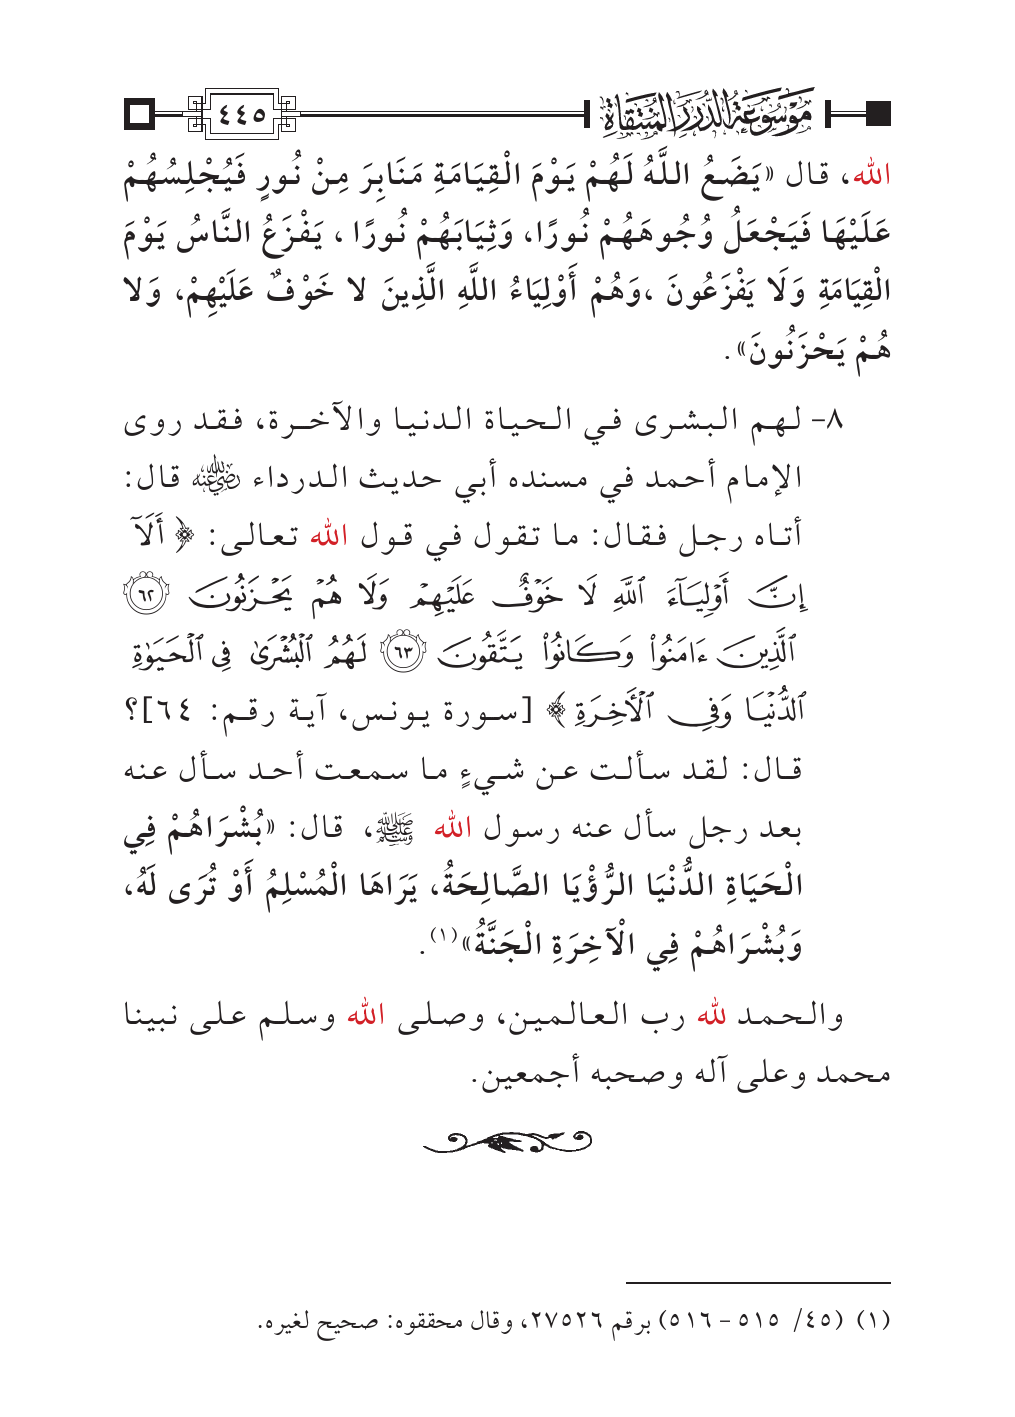 موسوعة الدرر المنتقاة ٤٤٥
الله، قال «يَضَعُ اللَّهُ لَهُمْ يَوْمَ الْقِيَامَةِ مَنَابِرَ مِنْ نُورٍ فَيُجْلِسُهُمْ
عَلَيْهَا فَيَجْعَلُ وُجُوهَهُمْ نُورًا، وَثِيَابَهُمْ نُورًا ، يَفْزَعُ النَّاسُ يَوْمَ
الْقِيَامَةِ وَلَا يَفْزَعُونَ ،وَهُمْ أَوْلِيَاءُ اللَّهِ الَّذِينَ لا خَوْفٌ عَلَيْهِمْ، وَلا
هُمْ يَحْزَنُونَ».
٨- لهم البشرى في الحياة الدنيا والآخرة، فقد روى
الإمام أحمد في مسنده أبي حديث الدرداء رضي الله عنه قال:
أتاه رجل فقال: ما تقول في قول الله تعالى: ﴿ أَلَآ
إِنَّ أَوْلِيَآءَ ٱللَّهِ لَا خَوْفٌ عَلَيْهِمْ وَلَا هُمْ يَحْزَنُونَ ٦٢
ٱلَّذِينَ ءَامَنُواْ وَكَانُواْ يَتَّقُونَ ٦٣ لَهُمُ ٱلْبُشْرَىٰ فِى ٱلْحَيَوٰةِ
ٱلدُّنْيَا وَفِى ٱلْأَخِرَةِ ﴾ [سورة يونس، آية رقم: ٦٤]؟
قال: لقد سألت عن شيءٍ ما سمعت أحد سأل عنه
بعد رجل سأل عنه رسول الله ﷺ، قال: «بُشْرَاهُمْ فِي
الْحَيَاةِ الدُّنْيَا الرُّؤْيَا الصَّالِحَةُ، يَرَاهَا الْمُسْلِمُ أَوْ تُرَى لَهُ،
وَبُشْرَاهُمْ فِي الْآخِرَةِ الْجَنَّةُ»(١).
والحمد لله رب العالمين، وصلى الله وسلم على نبينا
محمد وعلى آله وصحبه أجمعين.
(١) (٤٥/ ٥١٥ - ٥١٦) برقم ٢٧٥٢٦، وقال محققوه: صحيح لغيره.